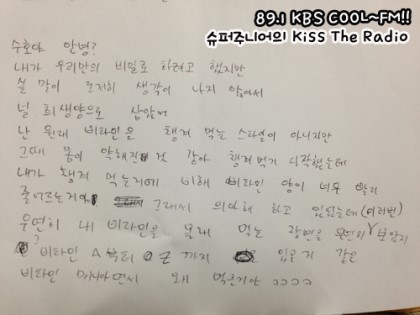 89.1 KBS COOL~FM!!
슈퍼주니어의 Kiss The Radio
수호야 안녕?
내가 우리만의 비밀로 하려고 했지만
쓸 말이 도저히 생각이 나지 않아서
널 희생양으로 삼았어
난 원래 비타민을 챙겨 먹는 스타일이 아니지만
그때 몸이 약해진 것 같아 챙겨먹기 시작했는데
내가 챙겨 먹는거에 비해 비타민 양이 너무 빨리
줄어드는거야 그래서 의아해 하고 있었는데 (여러번)
우연히 내 비타민을 몰래 먹는 장면을 우연히 보았지
비타민 A부터 Z 까지 있을 거 같은
비타민 마니아면서 왜 먹은거야 ㅋㅋㅋㅋ